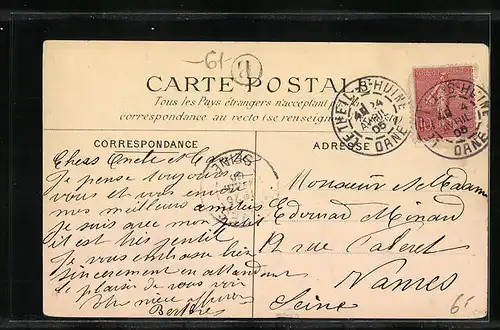 -61-
11
CARTE POSTALE
Tous les Pays étrangers n'acceptant pas
correspondance au recto (se renseigner
LE THEIL-S-HUINE
24
AVRIL
05
ORNE
CORRESPONDANCE
ADRESSE
Chers Oncle et
Je pense toujours à
vous et vous envoie
mes meilleurs amitiés
Je suis avec mon petit
il est très gentil
Je vous embrasse bien
sincèrement en attendant
le plaisir de vous voir
Votre nièce
Berthe
Monsieur et Madame
Edouard Minard
rue
Seine
65